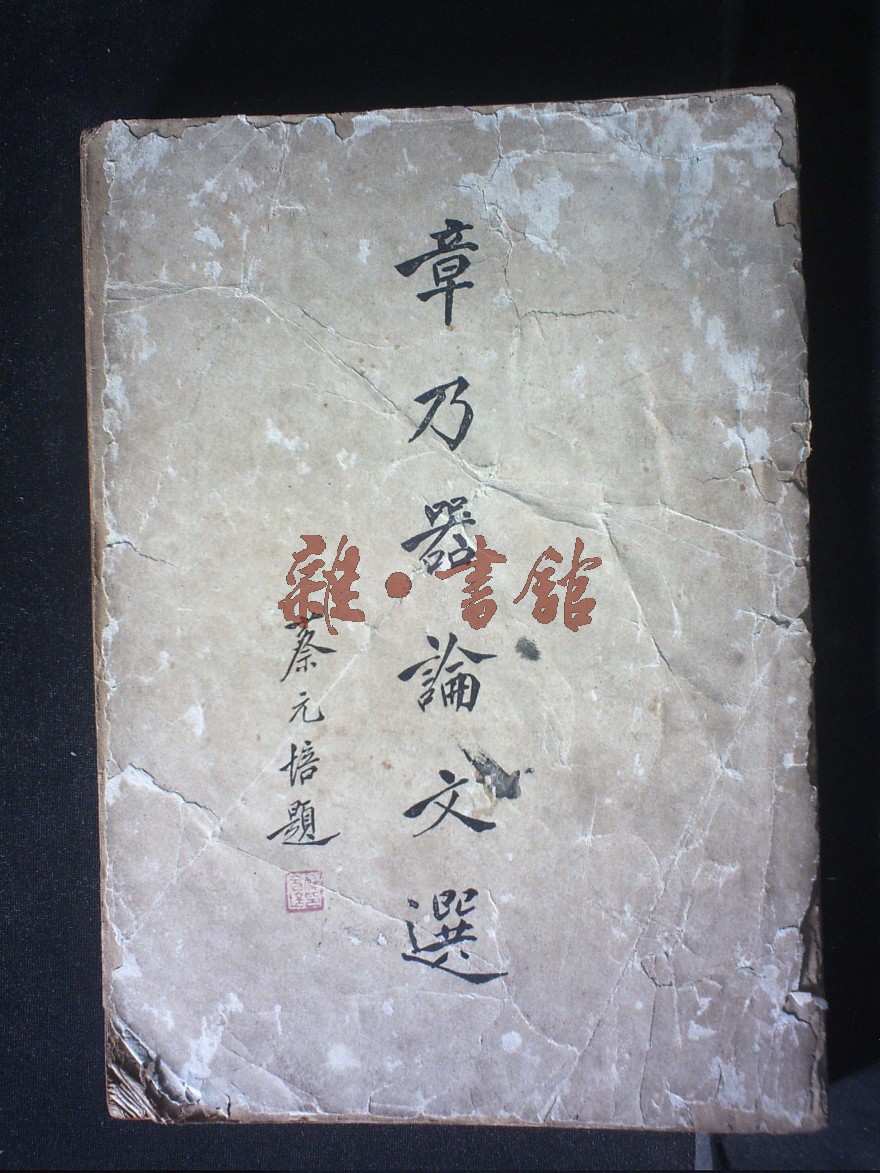 章乃器論文選
蔡元培題
雜·書館